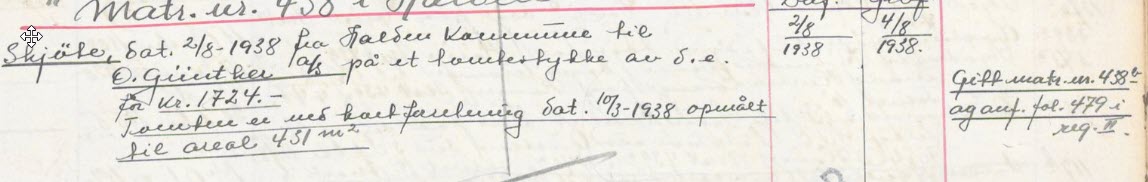 Matr. nr. 438 i Halden
2/8
1938
4/8
1938.
Skjöte, dat. 2/8-1938 fra Halden Kommune til
O. Günther a/s på et tomtestykke av d.e.
for Kr. 1724.-
Tomten er ved kartforretning dat. 10/3-1938 opmålt
til areal 431 m²
Gitt matr. nr. 438 b
og anf. fol. 479 i
reg. II.